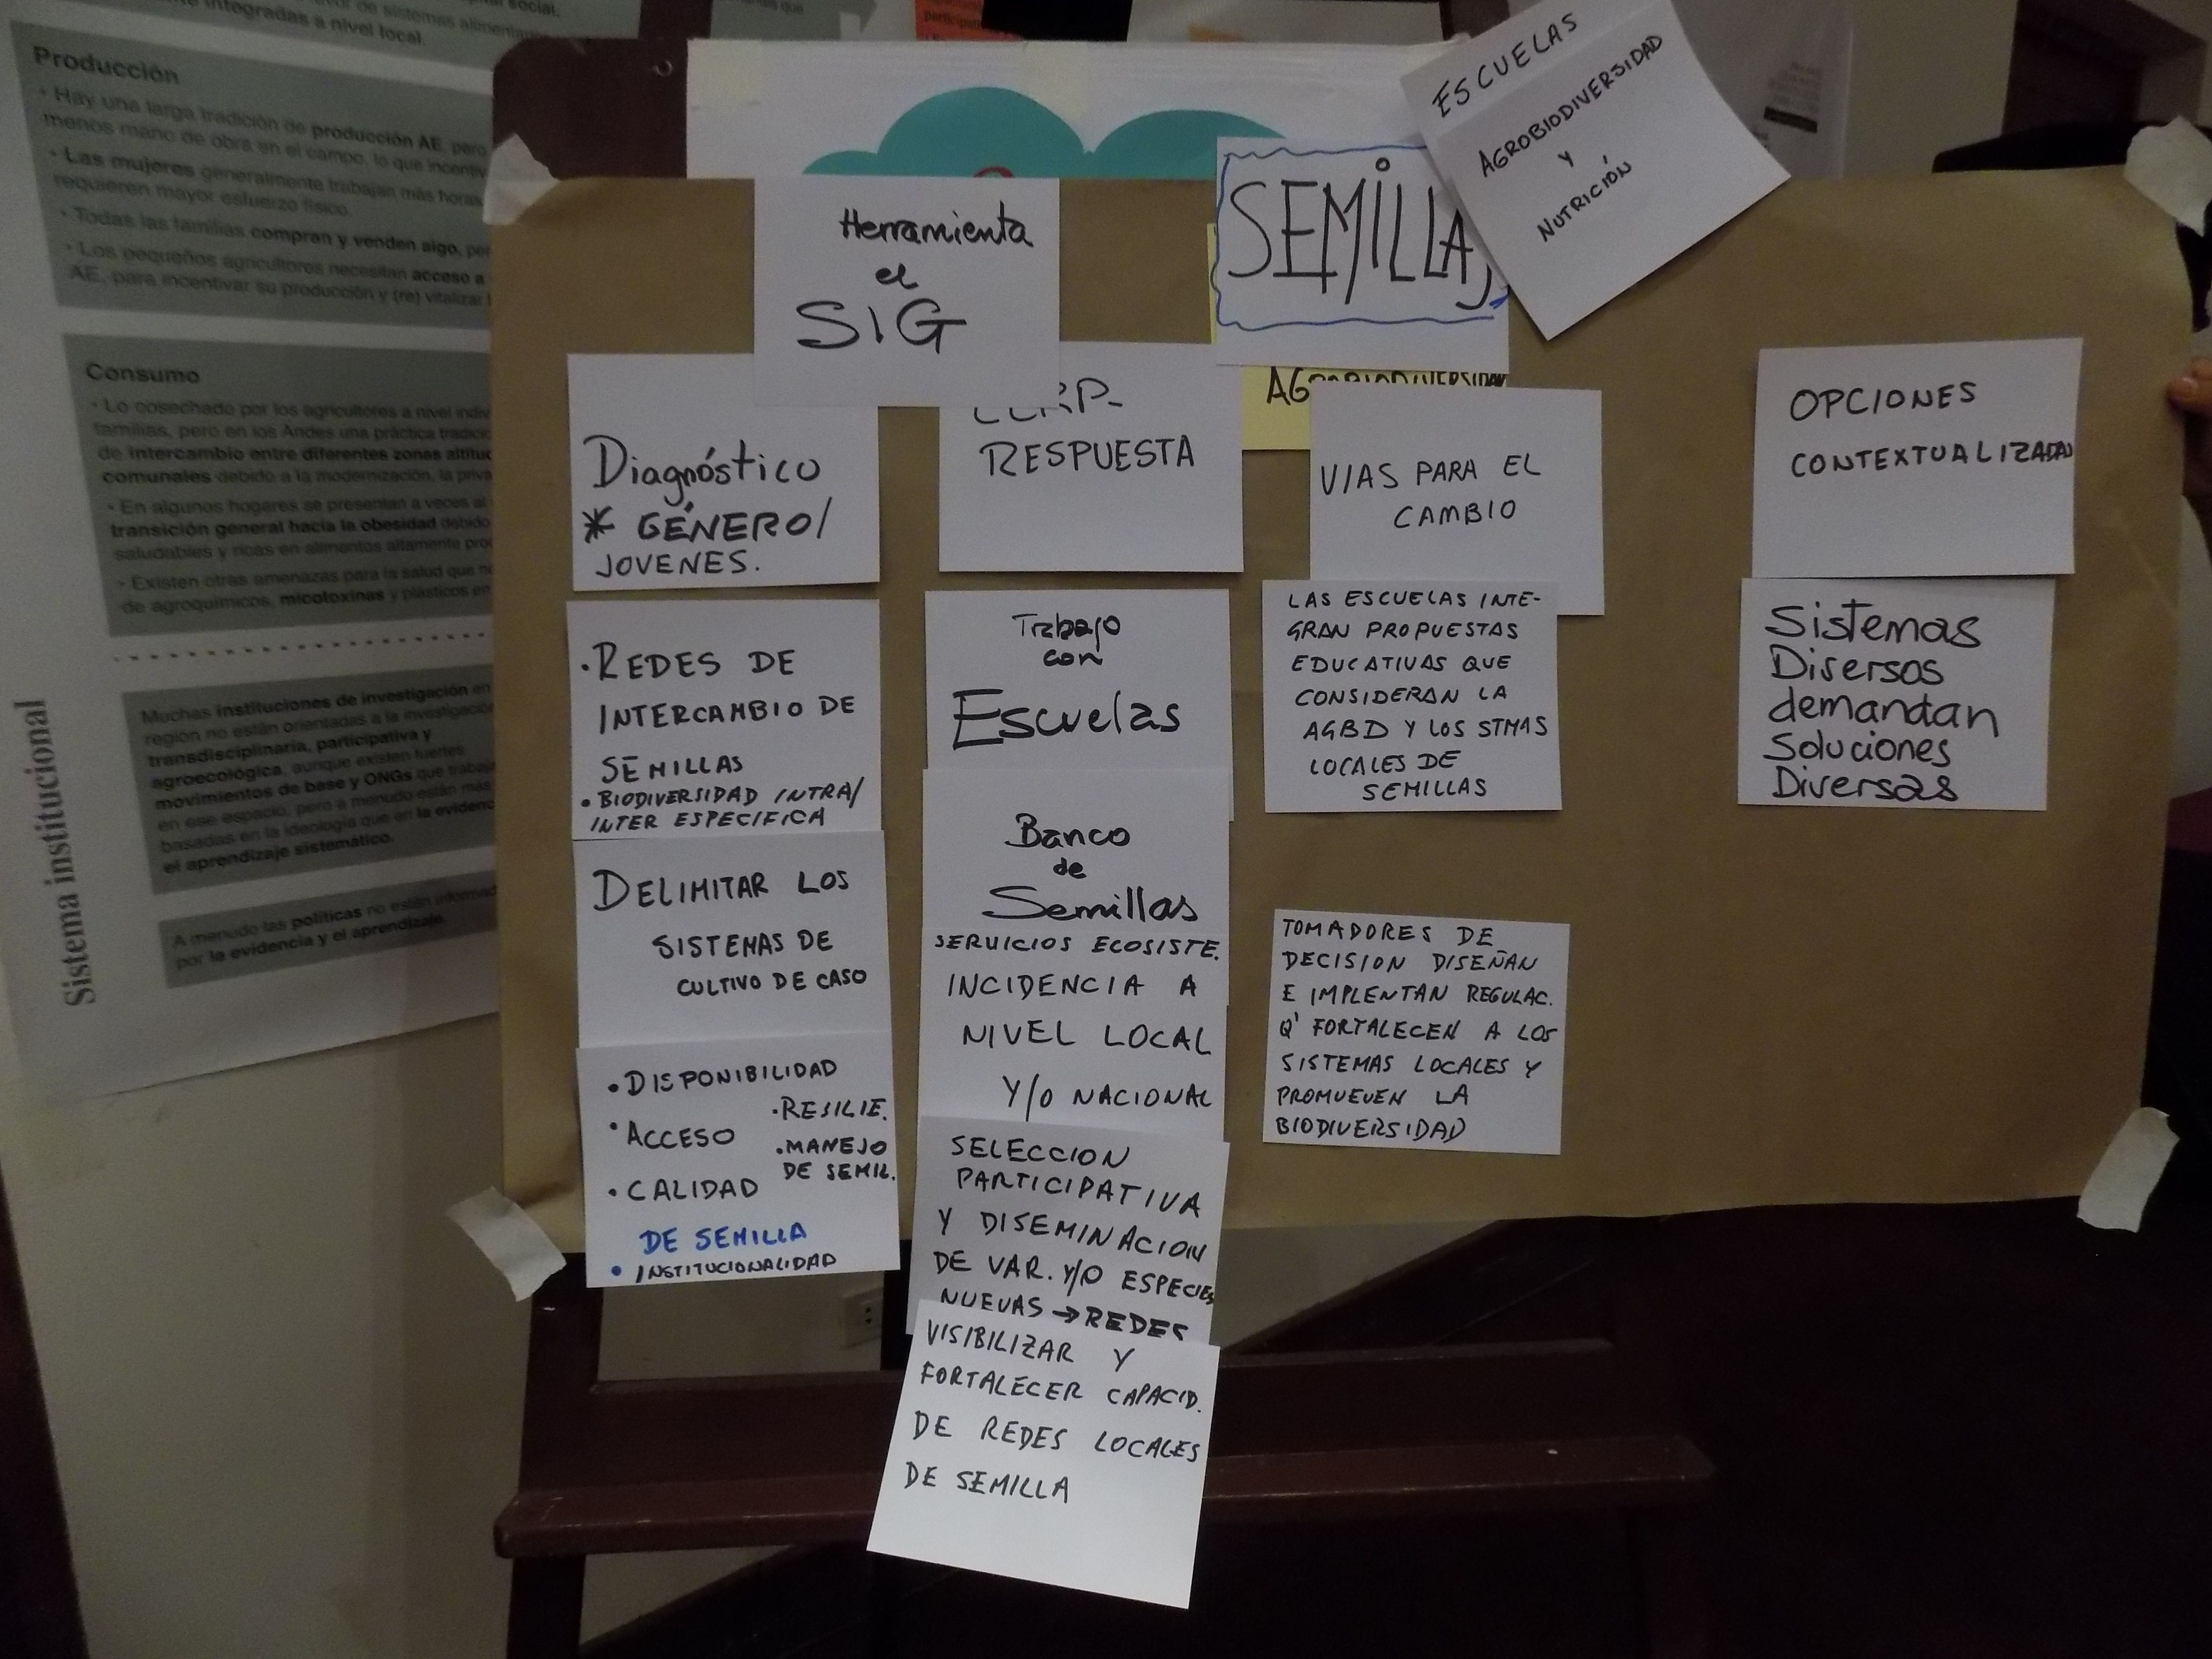 social.
de sistemas alimentarios
integradas a nivel local.
Producción
• Hay una larga tradición de producción AE, pero
menos mano de obra en el campo, lo que incentiv
• Las mujeres generalmente trabajan más horas
requieren mayor esfuerzo físico.
• Todas las familias compran y venden algo, per
• Los pequeños agricultores necesitan acceso a
AE, para incentivar su producción y (re) vitalizar
Consumo
• Lo cosechado por los agricultores a nivel indiv
familias, pero en los Andes una práctica tradicio
de intercambio entre diferentes zonas altitud
comunales debido a la modernización, la priva
• En algunos hogares se presentan a veces al
transición general hacia la obesidad debido
saludables y ricas en alimentos altamente proc
• Existen otras amenazas para la salud que no
de agroquímicos, micotoxinas y plásticos en
Sistema institucional
Muchas instituciones de investigación en
región no están orientadas a la investigación
transdisciplinaria, participativa y
agroecológica, aunque existen fuertes
movimientos de base y ONGs que trabaja
en ese espacio, pero a menudo están más
basadas en la ideología que en la evidenc
el aprendizaje sistemático.
A menudo las políticas no están informad
por la evidencia y el aprendizaje.
Herramienta
el
SIG
SEMILLAS
ESCUELAS
AGROBIODIVERSIDAD
Y
NUTRICIÓN
AGROBIODIVERSIDAD
Diagnóstico
* GÉNERO/
JOVENES.
• REDES DE
INTERCAMBIO DE
SEMILLAS
• BIODIVERSIDAD INTRA/
INTER ESPECIFICA
DELIMITAR LOS
SISTEMAS DE
CULTIVO DE CASO
• DISPONIBILIDAD
• RESILIE.
• ACCESO
• MANEJO
DE SEMIL.
• CALIDAD
DE SEMILLA
• INSTITUCIONALIDAD
RESPUESTA
Trabajo
con
Escuelas
Banco
de
Semillas
SERVICIOS ECOSISTE.
INCIDENCIA A
NIVEL LOCAL
Y/O NACIONAL
SELECCION
PARTICIPATIVA
Y DISEMINACION
DE VAR. Y/O ESPECIES
NUEVAS → REDES
VISIBILIZAR Y
FORTALECER CAPACID.
DE REDES LOCALES
DE SEMILLA
VIAS PARA EL
CAMBIO
LAS ESCUELAS INTE-
GRAN PROPUESTAS
EDUCATIVAS QUE
CONSIDERAN LA
AGBD Y LOS STMAS
LOCALES DE
SEMILLAS
TOMADORES DE
DECISION DISEÑAN
E IMPLENTAN REGULAC.
Q' FORTALECEN A LOS
SISTEMAS LOCALES Y
PROMUEVEN LA
BIODIVERSIDAD
OPCIONES
CONTEXTUALIZADAS
Sistemas
Disersos
demandan
Soluciones
Diversas